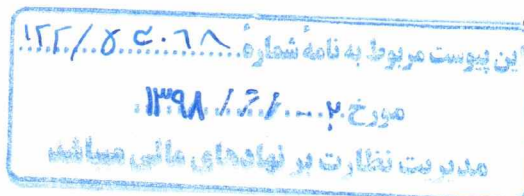 این پیوست مربوط به نامهٔ شمارهٔ ۱۲۲/۷۵۰۶۸
مورخ ۱۳۹۸/۶/۰۲
مدیریت نظارت بر نهادهای مالی میباشد